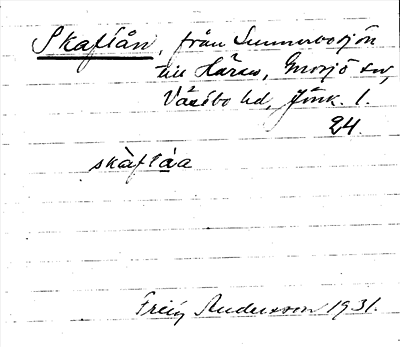 Skaftån, från Summerbosjön
till Håren, Gnosjö sn,
Västbo hd, Jönk. l.
24.
skàftåa
Andersson 1931.